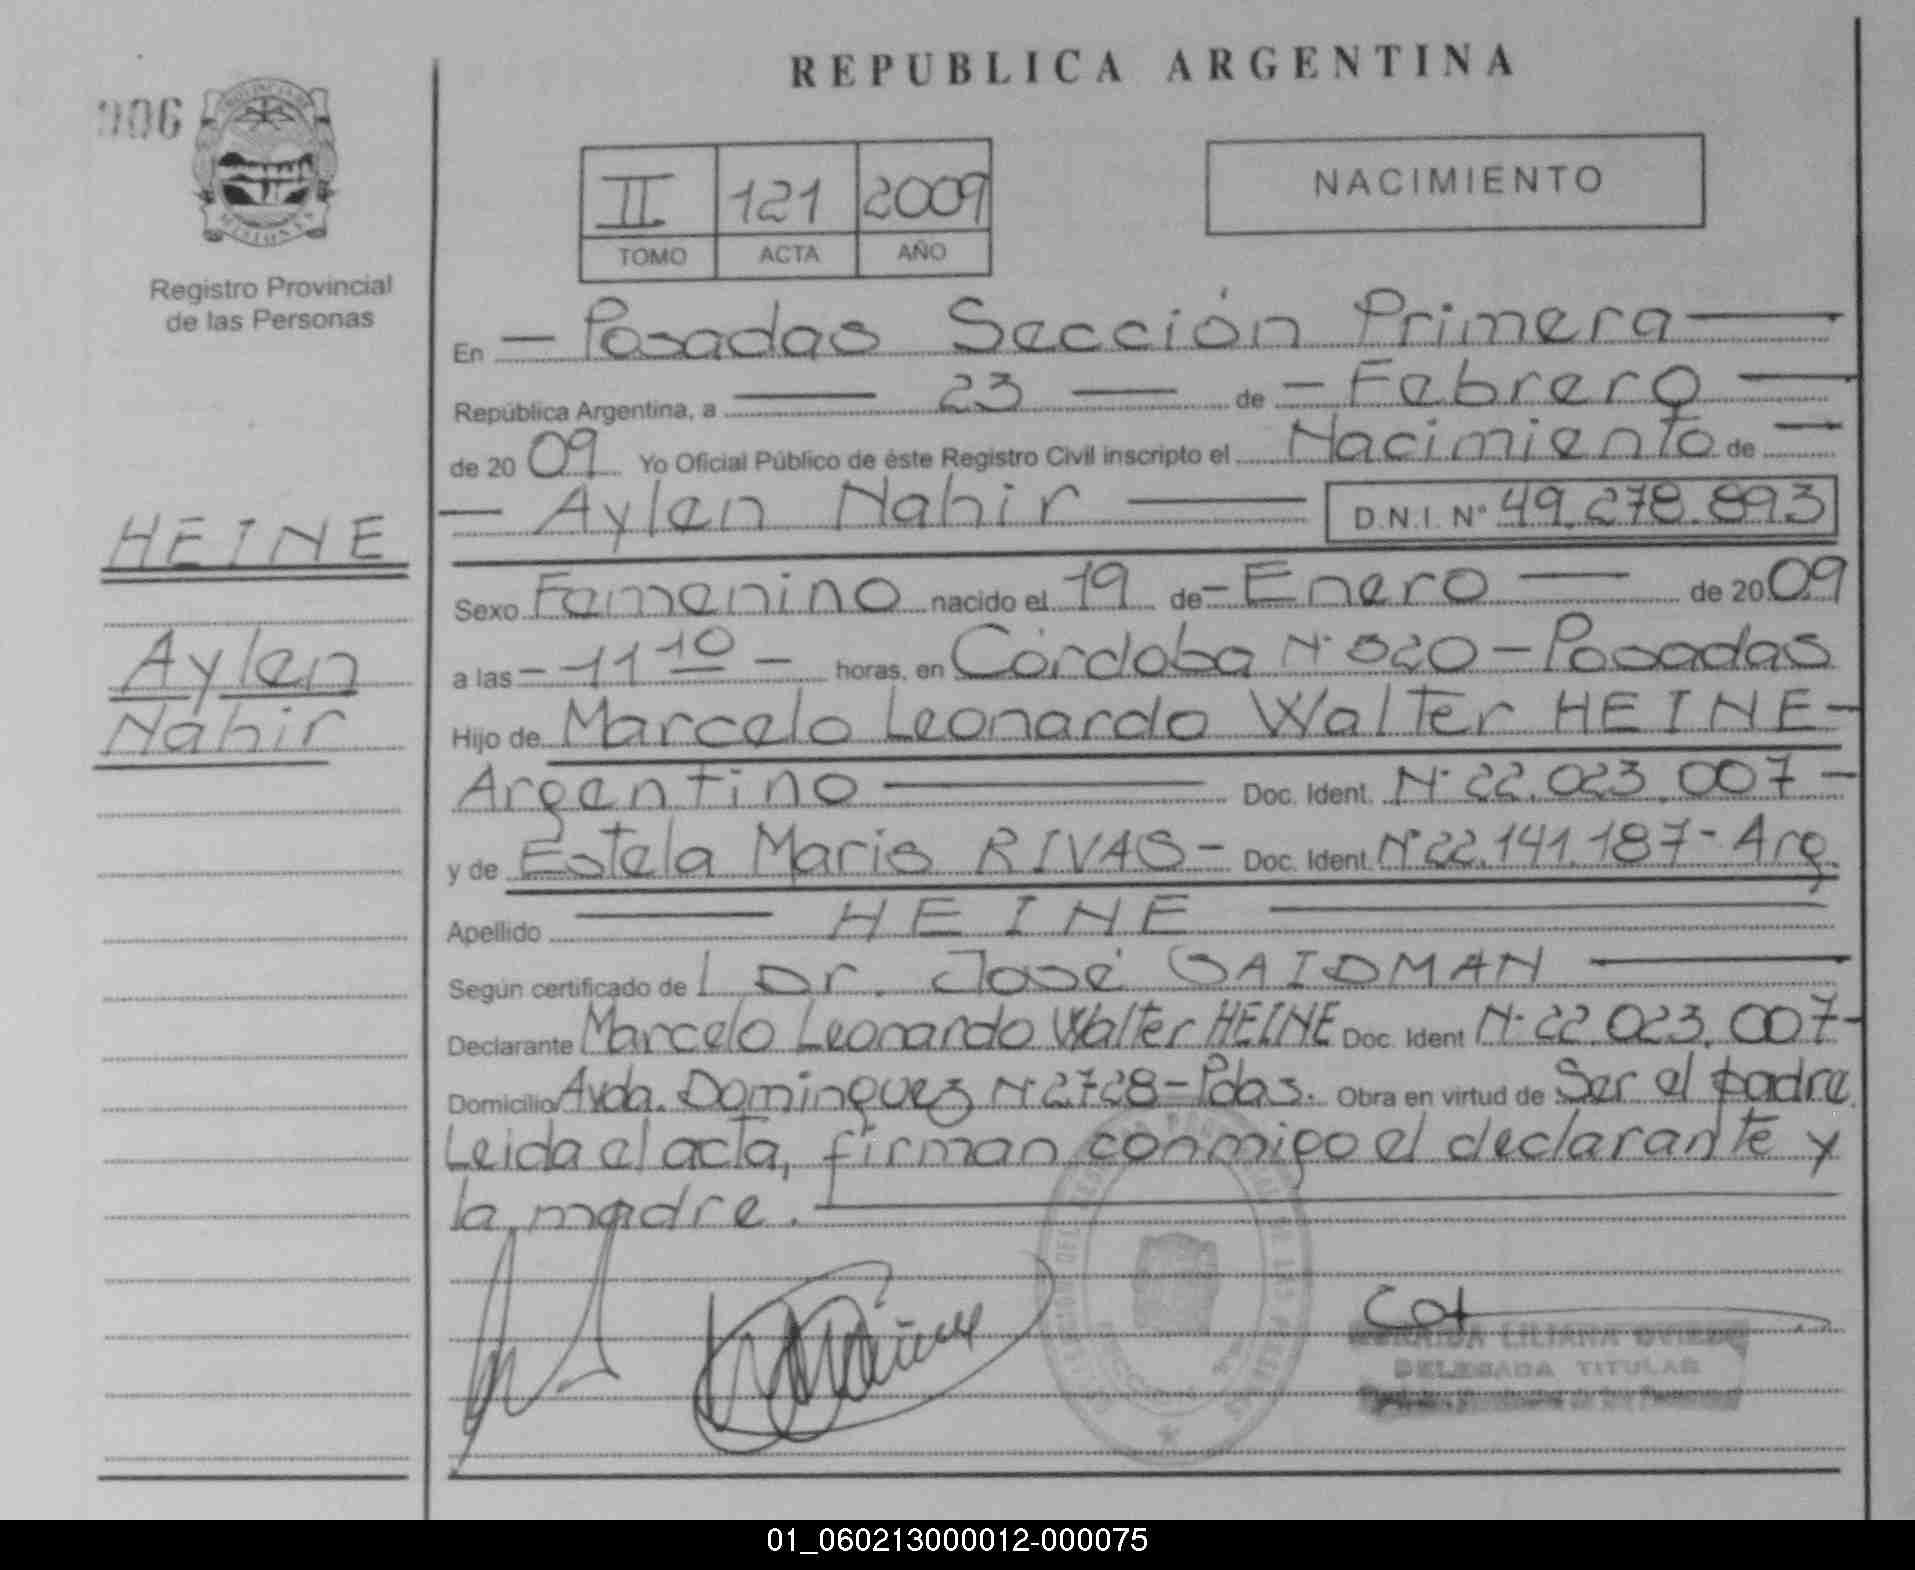 REPUBLICA ARGENTINA
006
PROVINCIA DE
MISIONES
Registro Provincial
de las Personas
II 121 2009
TOMO ACTA AÑO
NACIMIENTO
En — Posadas Sección Primera —
República Argentina, a — 23 — de — Febrero —
de 20 09 Yo Oficial Público de éste Registro Civil inscripto el Nacimiento de —
— Aylen Nahir — D.N.I. Nº 49.278.893
HEINE
Aylen
Nahir
Sexo Femenino nacido el 19 de - Enero — de 20 09
a las - 11 10 - horas, en Córdoba Nº 520 - Posadas
Hijo de Marcelo Leonardo Walter HEINE -
Argentino — Doc. Ident. Nº 22.023.007 -
y de Estela Maris RIVAS - Doc. Ident. Nº 22.141.187 - Arg.
Apellido — HEINE —
Según certificado de l Dr. José SAIDMAN —
Declarante Marcelo Leonardo Walter HEINE Doc. Ident Nº 22.023.007 -
Domicilio Avda. Dominguez Nº 2728 - Pdas. Obra en virtud de Ser el padre.
Leida el acta, firman conmigo el declarante y
la madre. —
LILIANA OVIEDO
DELEGADA TITULAR
01_060213000012-000075